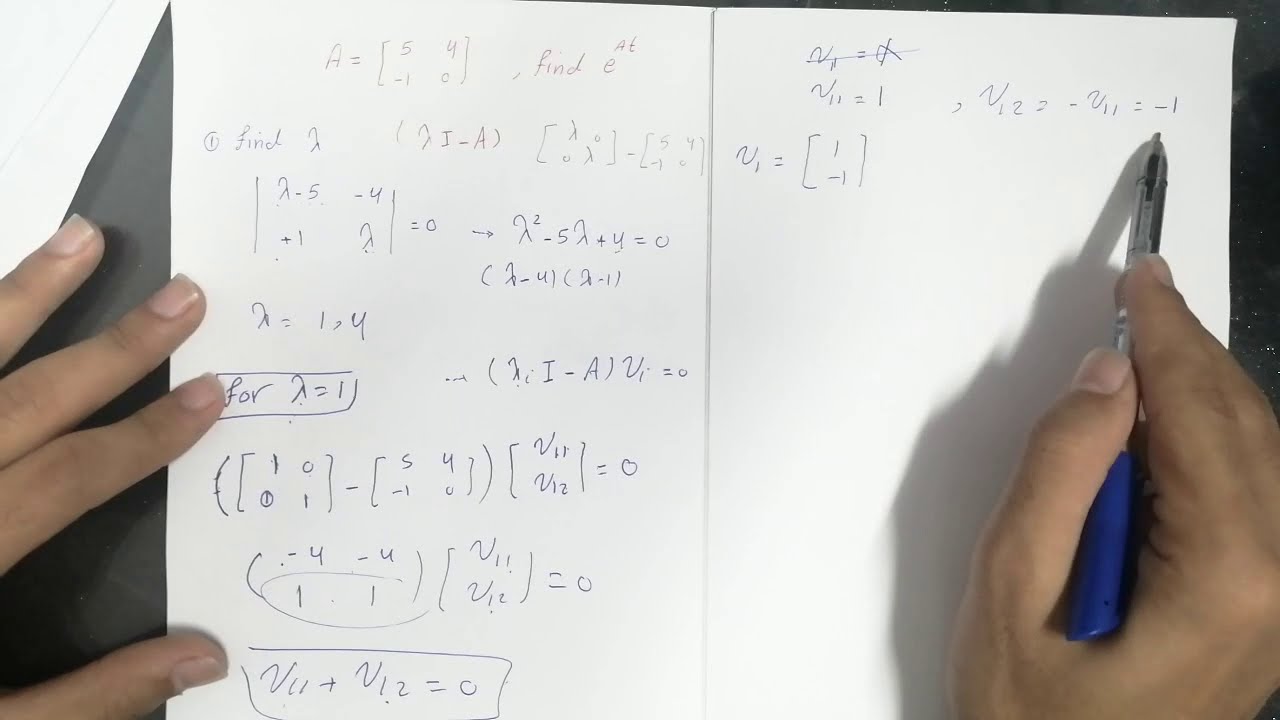 A = [5 4; -1 0] , find e^At
① find λ (λI-A) [λ 0; 0 λ] - [5 4; -1 0]
|λ-5 -4; +1 λ| = 0 → λ² - 5λ + 4 = 0
(λ-4)(λ-1)
λ = 1, 4
for λ=1 → (λᵢI-A)vᵢ = 0
([1 0; 0 1] - [5 4; -1 0]) [v₁₁; v₁₂] = 0
(-4 -4; 1 1) [v₁₁; v₁₂] = 0
v₁₁ + v₁₂ = 0
v₁₁ = 1 , v₁₂ = -v₁₁ = -1
v₁ = [1; -1]